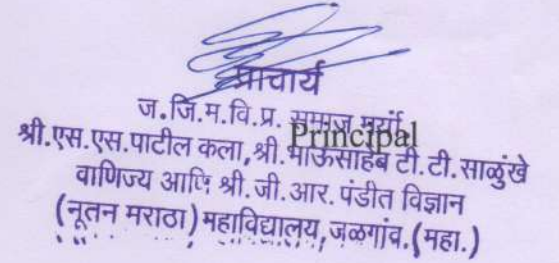 प्राचार्य
ज.जि.म.वि.प्र. समाज मर्या
Principal
श्री.एस.एस.पाटील कला,श्री.भाऊसाहेब टी.टी.साळुंखे
वाणिज्य आणि श्री.जी.आर. पंडीत विज्ञान
(नूतन मराठा) महाविद्यालय, जळगांव.(महा.)